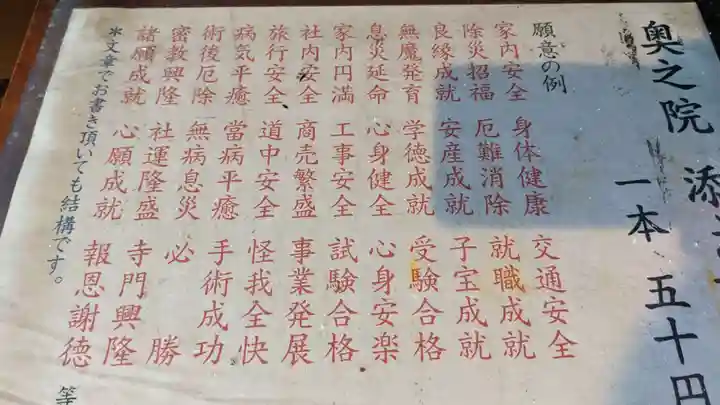 奥之院 添
一本 五十円
願意の例
家内安全 身体健康 交通安全
除災招福 厄難消除 就職成就
良縁成就 安産成就 子宝成就
無魔発育 学徳成就 受験合格
息災延命 心身健全 心身安楽
家内円満 工事安全 試験合格
社内安全 商売繁盛 事業発展
旅行安全 道中安全 怪我全快
病気平癒 當病平癒 手術成功
術後厄除 無病息災 必勝
密教興隆 社運隆盛 寺門興隆
諸願成就 心願成就 報恩謝徳 等
*文章でお書き頂いても結構です。